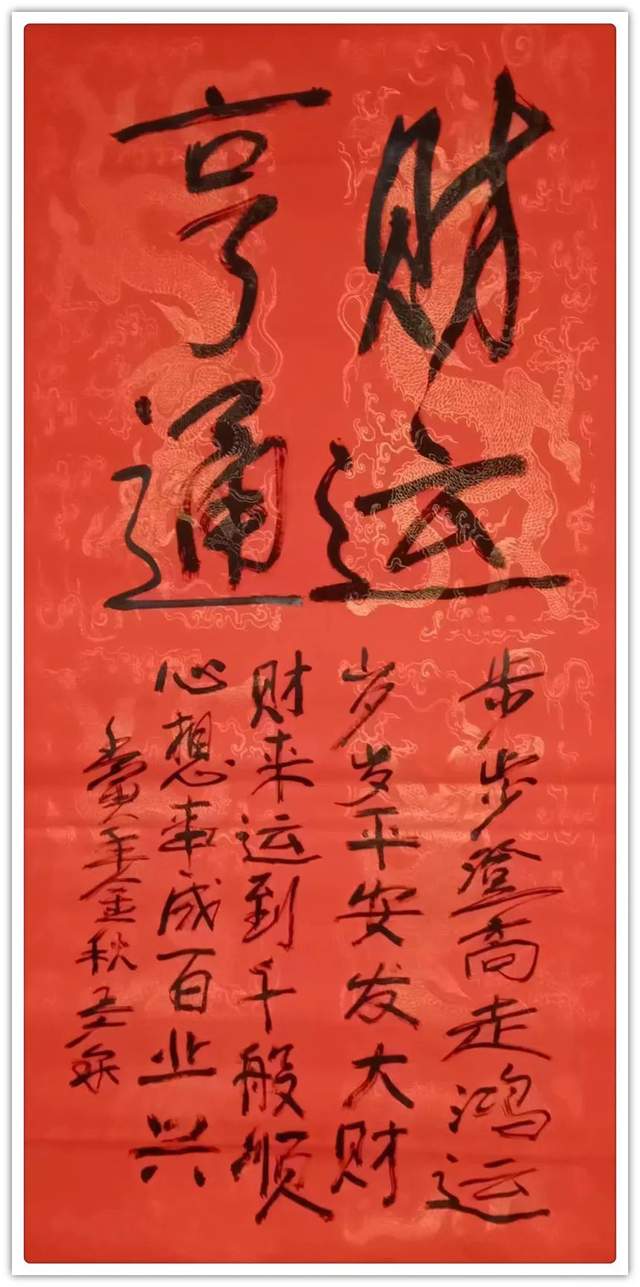 财运
亨通
步步登高走鸿运
岁岁平安发大财
财来运到千般顺
心想事成百业兴
金秋